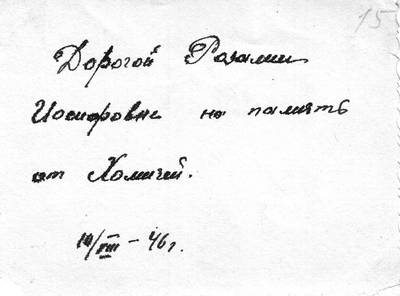 15
Дорогой Розалии
Иосифовне на память
от Хомичей.
10/VIII – 46 г.